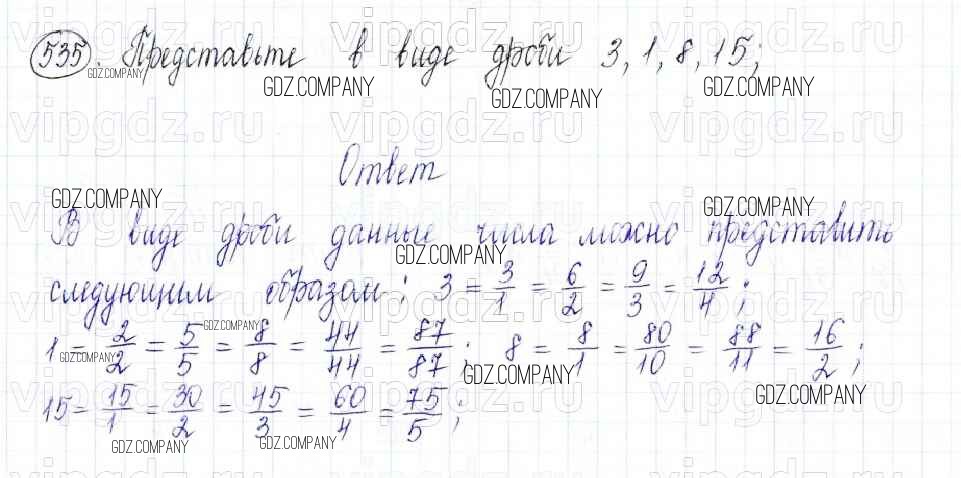 535. Представьте в виде дроби 3, 1, 8, 15;
Ответ
В виде дроби данные числа можно представить
следующим образом: 3 = 3/1 = 6/2 = 9/3 = 12/4;
1 = 2/2 = 5/5 = 8/8 = 44/44 = 87/87; 8 = 8/1 = 80/10 = 88/11 = 16/2;
15 = 15/1 = 30/2 = 45/3 = 60/4 = 75/5;
vipgdz.ru vipgdz.ru vipgdz.ru
GDZ.COMPANY GDZ.COMPANY GDZ.COMPANY GDZ.COMPANY
vipgdz.ru vipgdz.ru vipgdz.ru
GDZ.COMPANY GDZ.COMPANY
vipgdz.ru vipgdz.ru vipgdz.ru
GDZ.COMPANY
vipgdz.ru vipgdz.ru vipgdz.ru
GDZ.COMPANY GDZ.COMPANY GDZ.COMPANY
GDZ.COMPANY GDZ.COMPANY GDZ.COMPANY
vipgdz.ru vipgdz.ru vipgdz.ru